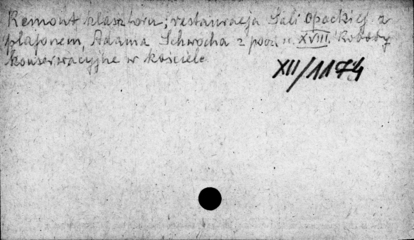 Remont klasztoru; restauracja Sali Opackiej z
plafonem Adama Schwocha z pocz. w. XVIII. Roboty
konserwacyjne w kościele
XII/1174